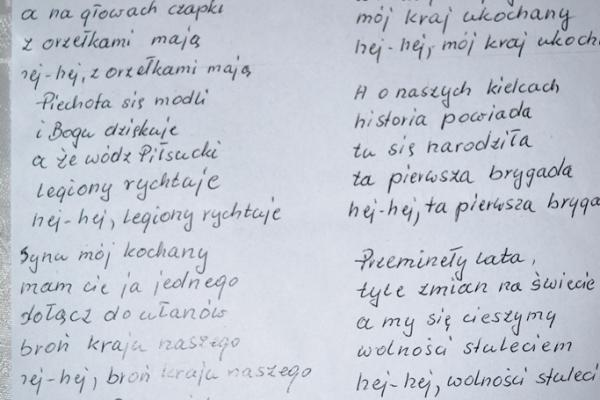 a na głowach czapki
z orzełkami mają
hej-hej, z orzełkami mają
Piechota się modli
i Bogu dziękuje
a że wódz Piłsucki
legiony rychtuje
hej-hej, legiony rychtuje
Synu mój kochany
mam cie ja jednego
dołącz do ułanów
broń kraju naszego
hej-hej, broń kraju naszego
mój kraj ukochany
hej-hej, mój kraj ukoch
A o naszych kielcach
historia powiada
tu się narodziła
ta pierwsza brygada
hej-hej, ta pierwsza bryga
Przeminęły lata,
tyle zmian na świecie
a my się cieszymy
wolności stuleciem
hej-hej, wolności stuleci